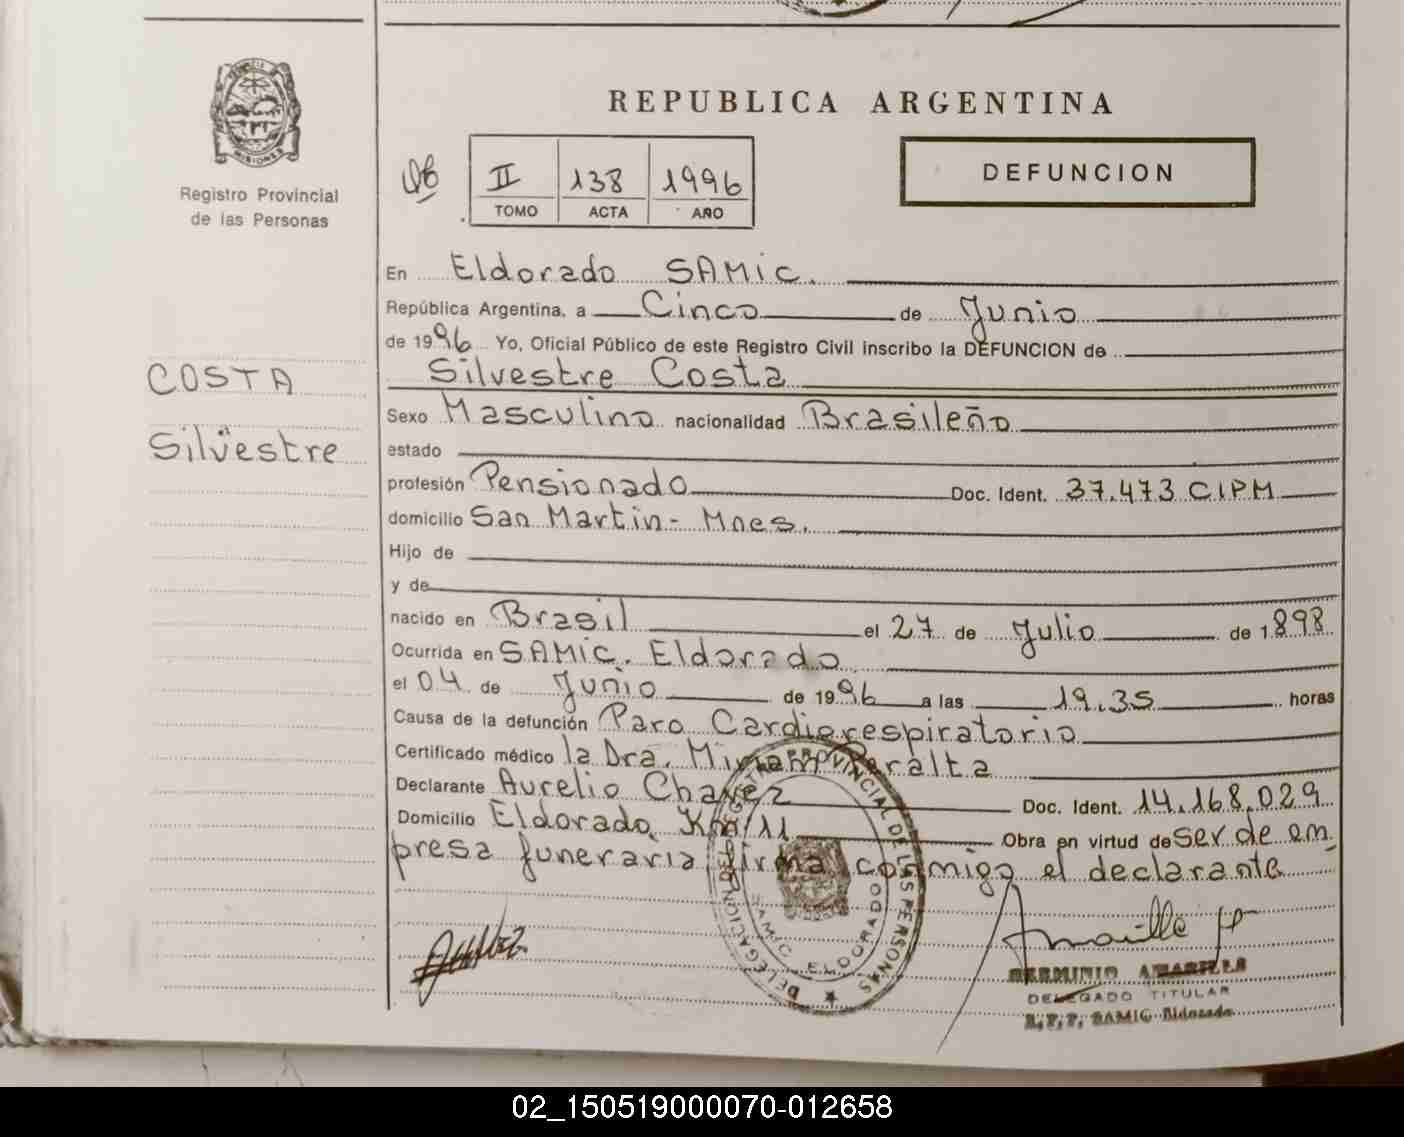 PROVINCIA DE
MISIONES
Registro Provincial
de las Personas
COSTA
Silvestre
REPUBLICA ARGENTINA
II 138 1996
TOMO ACTA AÑO
DEFUNCION
En Eldorado SAMIC.
República Argentina, a Cinco de Junio
de 1996 Yo, Oficial Público de este Registro Civil inscribo la DEFUNCION de
Silvestre Costa
Sexo Masculino nacionalidad Brasileño
estado
profesión Pensionado Doc. Ident. 37.473 CIPM
domicilio San Martin - Mnes.
Hijo de
y de
nacido en Brasil el 27 de Julio de 1898
Ocurrida en SAMIC. Eldorado
el 04 de Junio de 1996 a las 19.35 horas
Causa de la defunción Paro Cardiorespiratorio
Certificado médico la Dra. Miriam Peralta
Declarante Aurelio Chavez Doc. Ident. 14.168.029
Domicilio Eldorado, Km/11 Obra en virtud de ser de em
presa funeraria firma conmigo el declarante
DELEGACION DEL REGISTRO PROVINCIAL DE LAS PERSONAS
SAMIC ELDORADO
HERMINIO AMARILLA
DELEGADO TITULAR
R.P.P. SAMIC - Eldorado
02_150519000070-012658